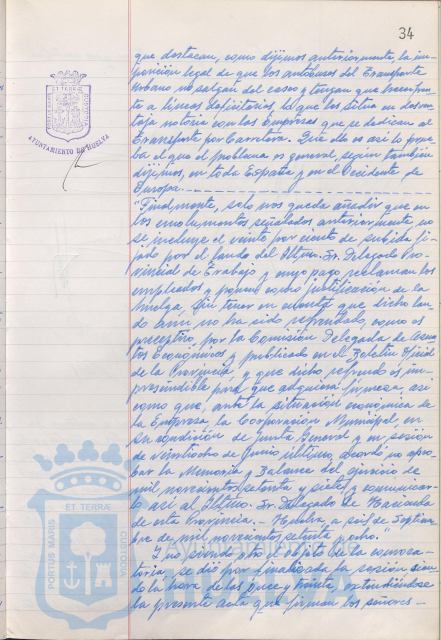 34
AYUNTAMIENTO DE HUELVA
que destacan, como dijimos anteriormente, la im-
posición legal de que los autobuses del Transporte
Urbano no salgan del casco y tengan que hacer
a líneas deficitarias, lo que los sitúa en desven-
taja notoria con las Empresas que se dedican al
Transporte por Carretera. Que ello es así lo prue-
ba el que el problema es general, según también
dijimos, en toda España y en el Occidente de
Europa.
"Finalmente, solo nos queda añadir que en
los emolumentos señalados anteriormente, no
se incluye el veinte por ciento de subida fi-
jado por el laudo del Iltmo. Sr. Delegado Pro-
vincial de Trabajo y cuyo pago reclaman los
empleados y ponen como justificación de la
huelga, sin tener en cuenta que dicho lau-
do aún no ha sido refrendado, como es
preceptivo, por la Comisión Delegada de Asun-
tos Económicos y publicado en el Boletín Oficial
de la Provincia, y que dicho refrendo es im-
prescindible para que adquiera firmeza, así
como que, ante la situación económica de
la Empresa, la Corporación Municipal, en
su condición de Junta General y en sesión
de veintiocho de Junio último, acordó no apro-
bar la Memoria y Balance del ejercicio de
mil novecientos setenta y siete y comunicar-
lo así al Iltmo. Sr. Delegado de Hacienda
de esta Provincia.- Huelva, a seis de Septiem-
bre de mil novecientos setenta y ocho."
Y no siendo otro el objeto de la convoca-
toria, se dió por finalizada la sesión siendo
la hora de las once y treinta, extendiéndose
la presente acta que firman los señores
PORTUS MARIS
ET TERRAE
CUSTODIA